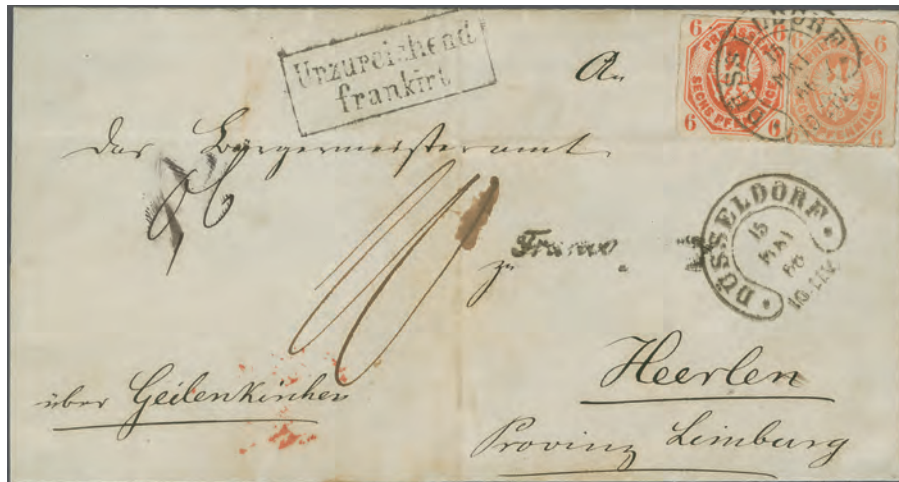 Unzureichend
frankirt
6 6 6 6
PREUSSEN
SECHS PFENNINGE
DÜSSELDORF
15
MAI
An
das Bürgermeisteramt
zu
Franco
DÜSSELDORF
15
MAI
66
Heerlen
über Geilenkirchen
Provinz Limburg